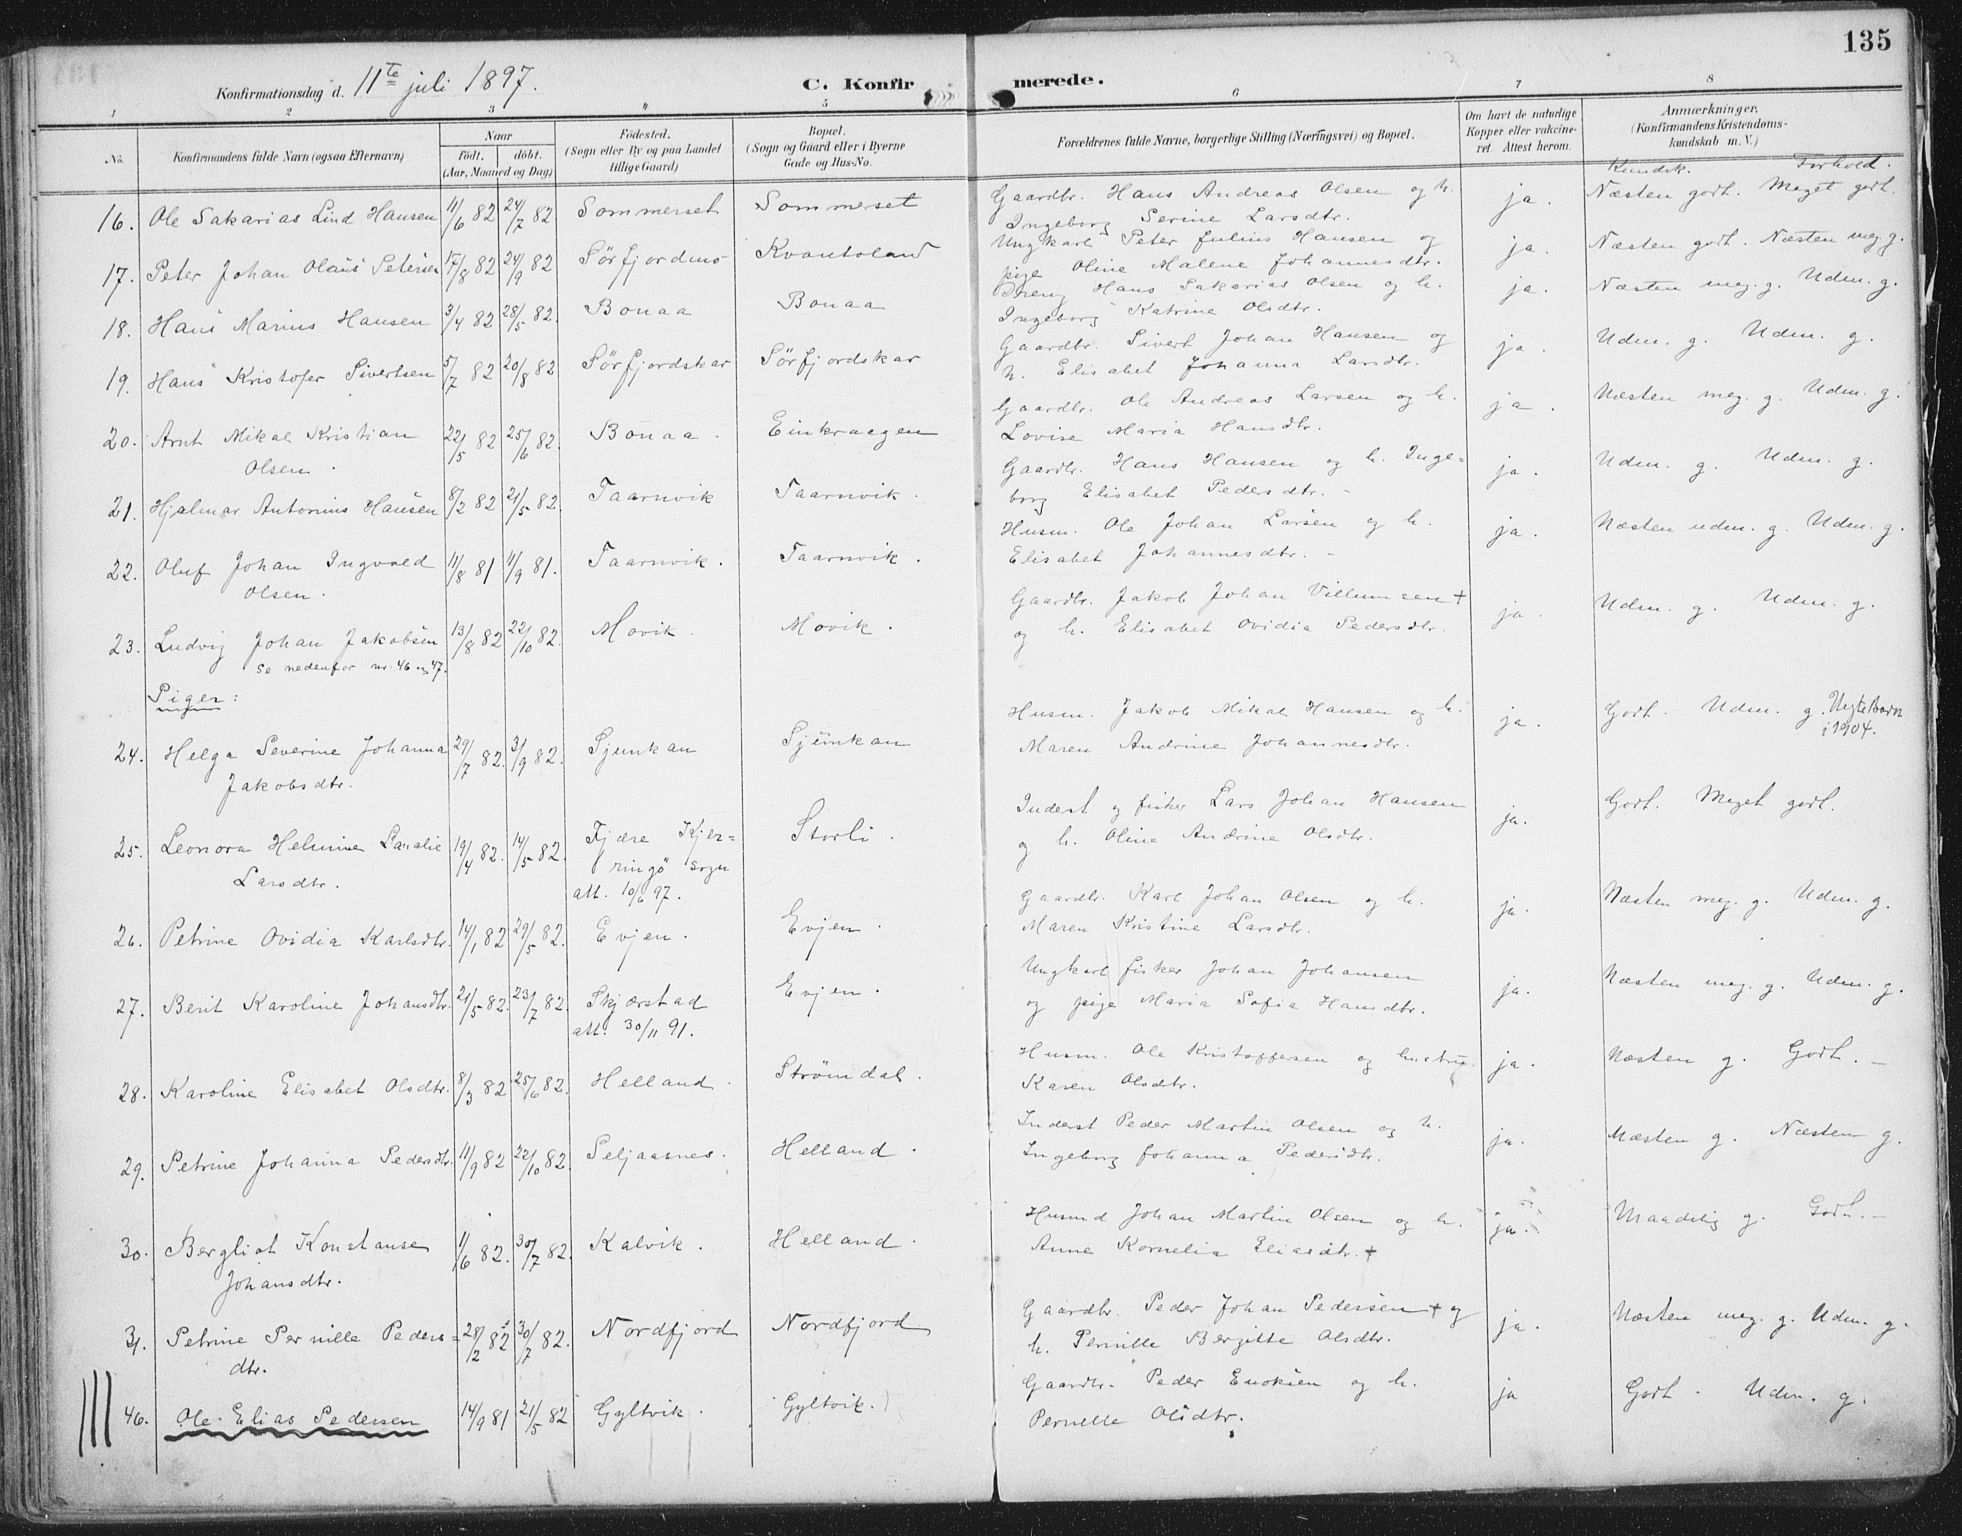 135
Konfirmationsdag d. 11te juli 1897. C. Konfirmerede.
1 2 3 4 5 6 7 8
No. Konfirmandens fulde Navn (ogsaa Efternavn) Naar født. døbt. (Aar, Maaned og Dag) Fødested. (Sogn eller By og paa Landet tillige Gaard) Bopæl. (Sogn og Gaard eller i Byerne Gade og Hus-No. Forældrenes fulde Navne, borgerlige Stilling (Næringsvei) og Bopæl. Om havt de naturlige Kopper eller vakcineret. Attest herom. Anmærkninger. (Konfirmandens Kristendomskundskab m. V.)
Kundsk. Forhold.
16. Ole Sakarias Lind Hansen 11/6 82 24/7 82 Sommerset Sommerset Gaardbr. Hans Andreas Olsen og h. ja. Næsten godt. Meget godt.
Ingeborg Serine Larsdtr.
17. Peter Johan Olaus Petersen 17/8 82 24/9 82 Sörfjordmo Kvantoland Ungkarl Peter Julius Hansen og ja. Næsten godt. Næsten meg g.
pige Oline Malene Johannesdtr.
18. Hans Marius Hansen 3/4 82 28/5 82. Bonaa Bonaa Dreng Hans Sakarias Olsen og h. ja. Næsten meg. g. Udm. g.
Ingeborg Katrine Olsdtr.
19. Hans Kristofer Sivertsen 5/7 82 20/8 82 Sörfjordskar Sörfjordskar Gaardbr. Sivert Johan Hansen og ja. Udm. g. Udm. g.
h. Elisabet Johanna Larsdtr.
20. Arnt Mikal Kristian 22/5 82 25/6 82. Bonaa. Einkraagen Gaardbr. Ole Andreas Larsen og h. ja. Næsten meg. g. Udm. g.
Olsen. Lovise Maria Hansdtr.
21. Hjalmar Antonius Hansen 8/2 82 21/5 82. Taarnvik Taarnvik. Gaardbr. Hans Hansen og h. Inge= ja. Udm. g. Udm. g.
borg Elisabet Pedersdtr. -
22. Oluf Johan Ingvald 11/8 81 11/9 81. Taarnvik. Taarnvik. Husm. Ole Johan Larsen og h. ja. Næsten udm. g. Udm. g.
Olsen. Elisabet Johannesdtr. -
23. Ludvig Johan Jakobsen 13/8 82 22/10 82. Movik. Movik. Gaardbr. Jakob Johan Villumsen + ja. Udm. g. Udm. g.
se nedenfor nr. 46 og 47. og h. Elisabet Ovidia Pedersdtr.
Piger:
24. Helga Severine Johanna 29/7 82. 3/9 82. Sjunkan Sjunkan Husm. Jakob Mikal Hansen og h. ja. Godt. Udm. g. Uegte Barn i 1904.
Jakobsdtr. Maren Andrine Johannesdtr.
25. Leonora Helmine Lanalie 19/4 82. 14/5 82. Fjære Kjer= Storli. Inderst og fisker Lars Johan Hansen ja. Godt. Meget godt.
Larsdtr. ringö sogn og h. Oline Andrine Olsdtr.
att. 10/6 97.
26. Petrine Ovidia Karlsdtr. 14/1 82 29/5 82. Evjen. Evjen. Gaardbr. Karl Johan Olsen og h. ja. Næsten meg. g. Udm. g.
Maren Kristine Larsdtr.
27. Berit Karoline Johansdtr. 21/5 82. 23/7 82. Skjærstad Evjen. Ungkarl fisker Johan Johansen ja. Næsten meg. g. Udm. g.
att. 30/11 91. og pige Maria Sofia Hansdtr.
28. Karoline Elisabet Olsdtr. 8/3 82 25/6 82. Helland. Strömdal. Husm. Ole Kristoffersen og hustru ja. Næsten g. Godt. -
Karen Olsdtr.
29. Petrine Johanna Pedersdtr. 11/9 82 22/10 82. Seljaasnes. Helland. Inderst Peder Martin Olsen og h. ja. Næsten g. Næsten g.
Ingeborg Johanna Pedersdtr.
30. Bergliot Konstanse 11/6 82. 30/7 82. Kalvik. Helland. Husmd Johan Martin Olsen og h. ja. Maadelig g. Godt. -
Johansdtr. Anne Kornelia Eliasdtr. +
31. Petrine Pernille Peders= 28/2 82 30/7 82. Nordfjord Nordfjord Gaardbr. Peder Johan Pedersen + og ja. Næsten meg. g. Udm. g.
dtr. h. Pernille Bergitte Olsdtr.
46. Ole Elias Pedersen 14/9 81 21/5 82 Gyltvik. Gyltvik. Gaardbr. Peder Enoksen og h. ja Godt. Udm. g.
Pernille Olsdtr.